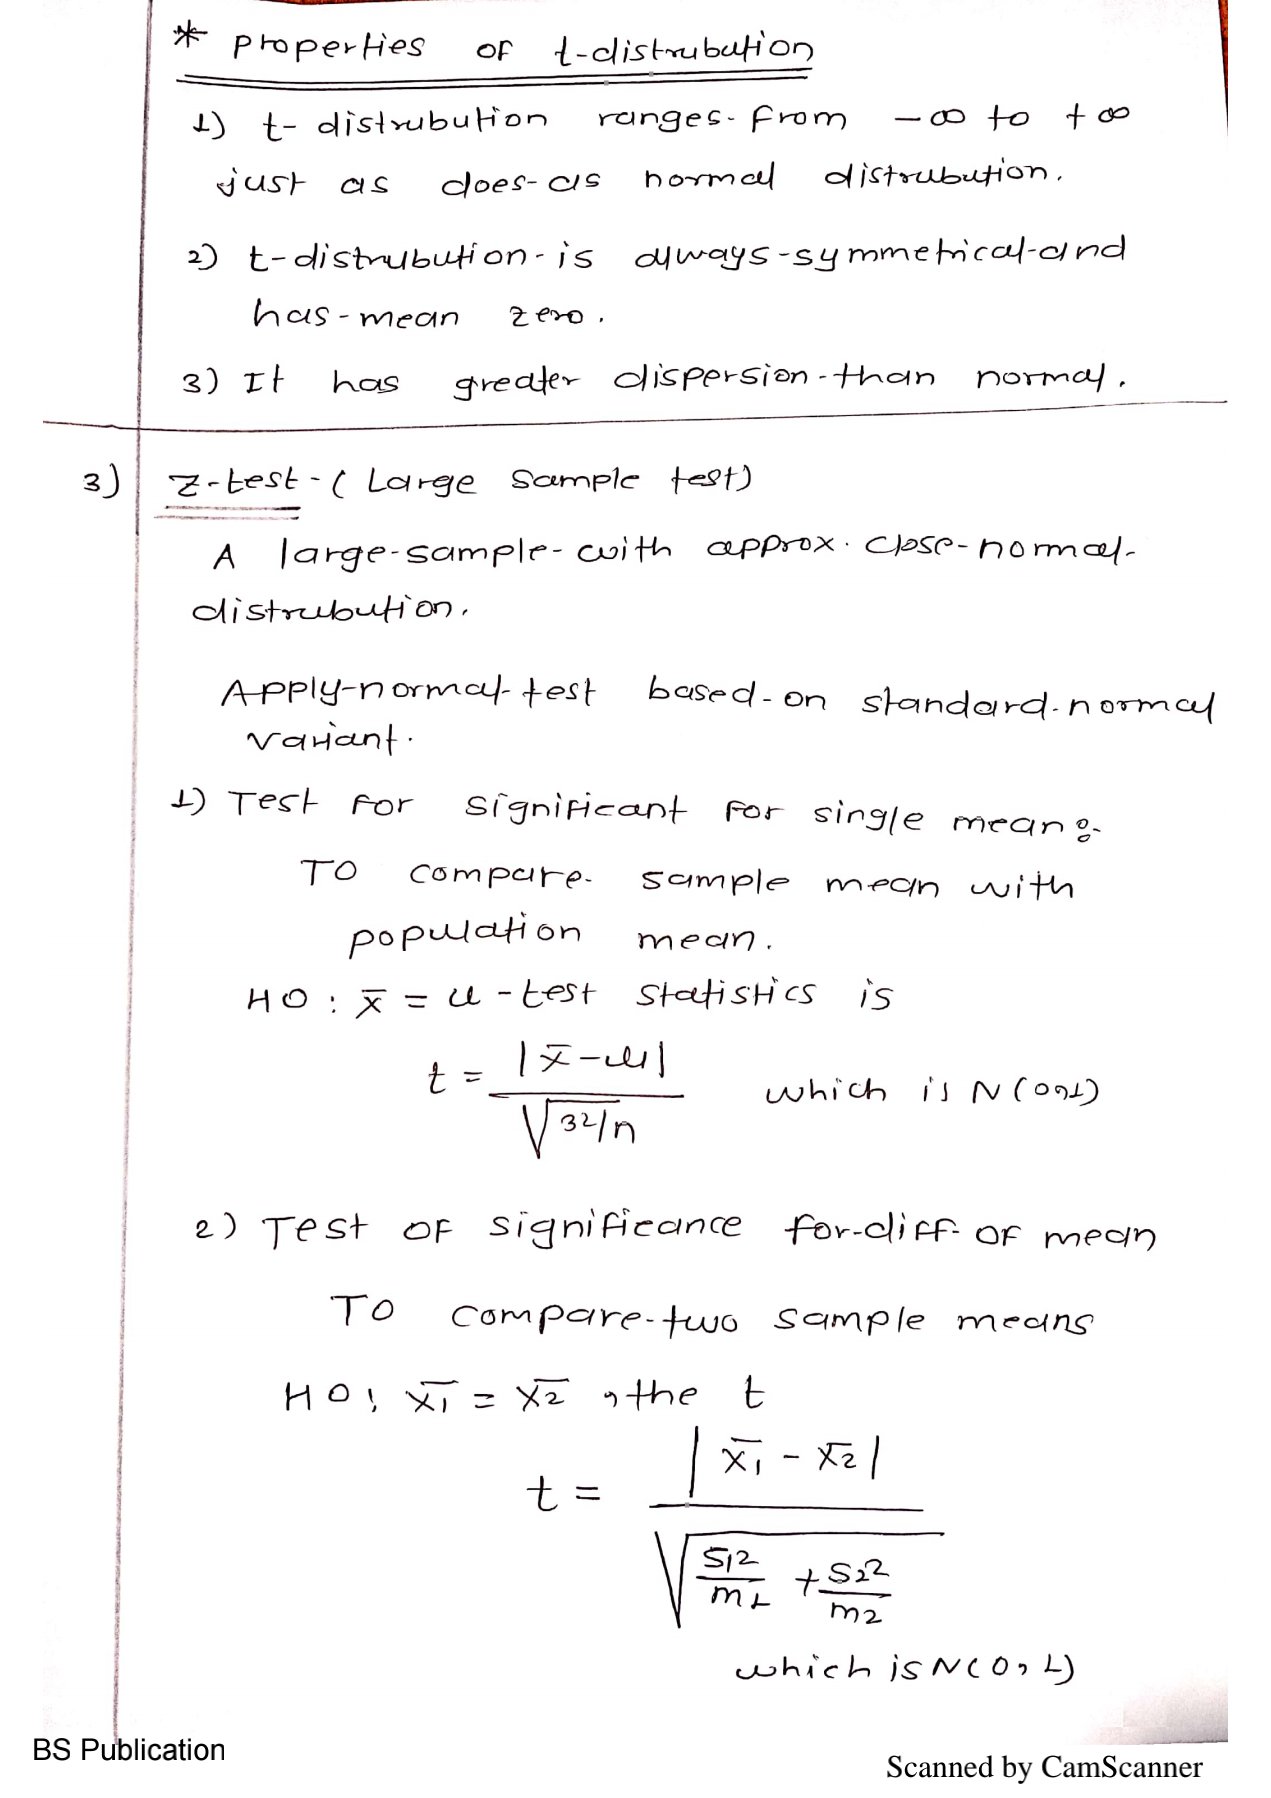 * properties of t-distrubution
1) t- distrubution ranges- from -∞ to +∞
just as does-as normal distrubution.
2) t-distrubution-is always-symmetrical-and
has-mean zero.
3) It has greater dispersion-than normal.
3) Z-test-(Large Sample test)
A large-sample-with approx. close-normal-
distrubution.
Apply-normal-test based-on standard-normal
variant.
1) Test for significant for single mean:-
To compare- sample mean with
population mean.
HO: x̄ = u -test statistics is
t = |x̄-u| / √32/n which is N(0,1)
2) Test of significance for-diff- of mean
To compare-two sample means
HO: x̄1 = x̄2 , the t
t = |x̄1 - x̄2| / √(S12/m1 + S22/m2)
which is N(0,1)
BS Publication
Scanned by CamScanner